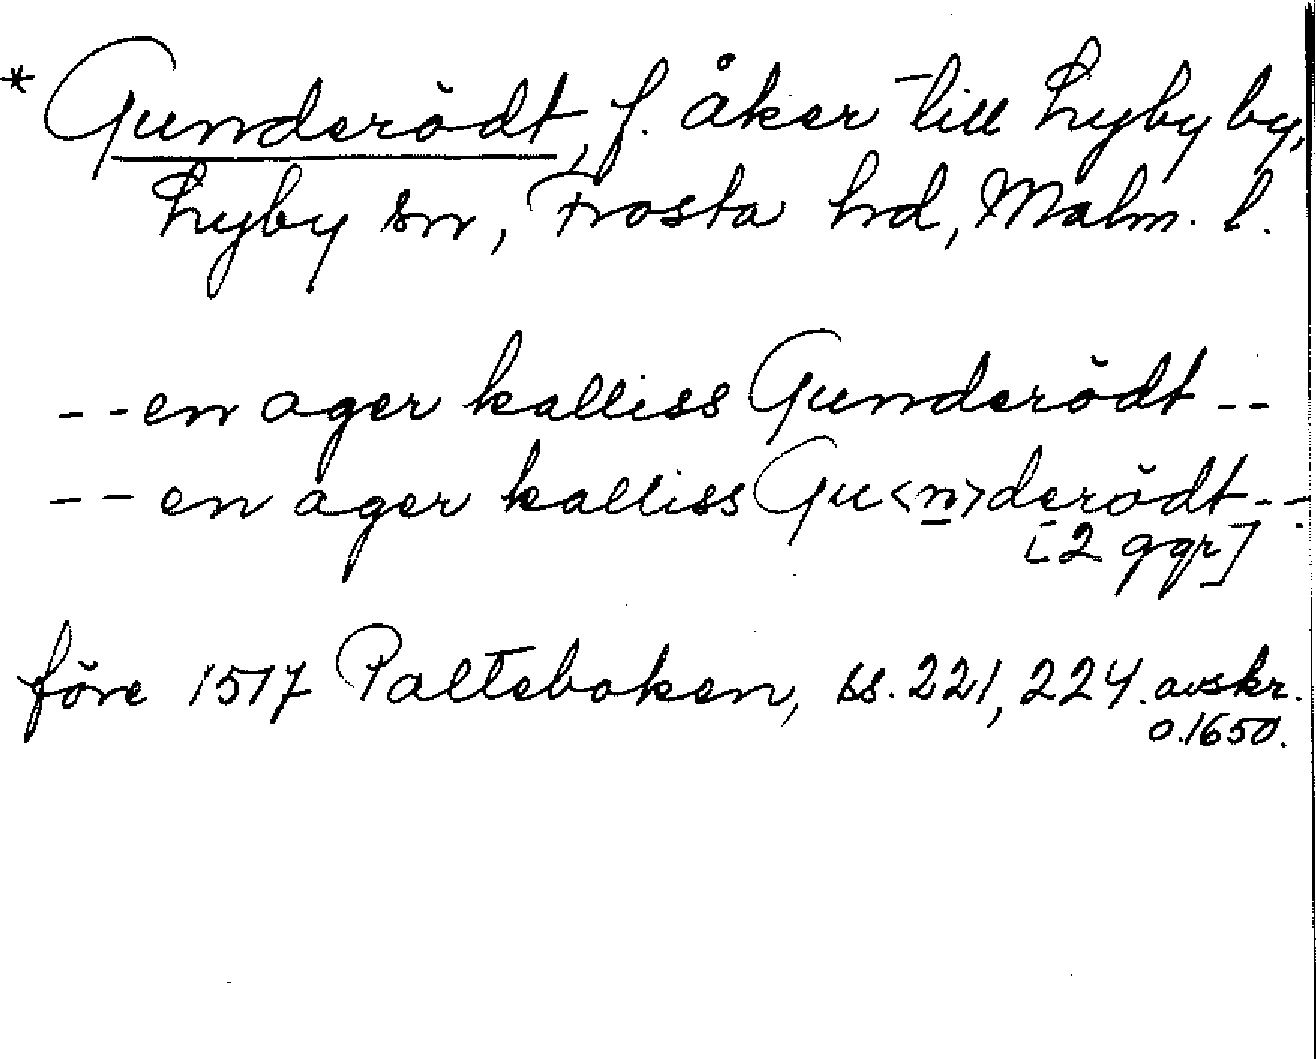 * Gunderödt, f. åker till Lyby by,
Lyby sn, Frosta hd, Malm. l.
-- en ager kalliss Gunderödt --
-- en ager kalliss Gu<n>derödt --
[2 ggr]
före 1517 Palteboken, ss. 221, 224. avskr.
o. 1650.